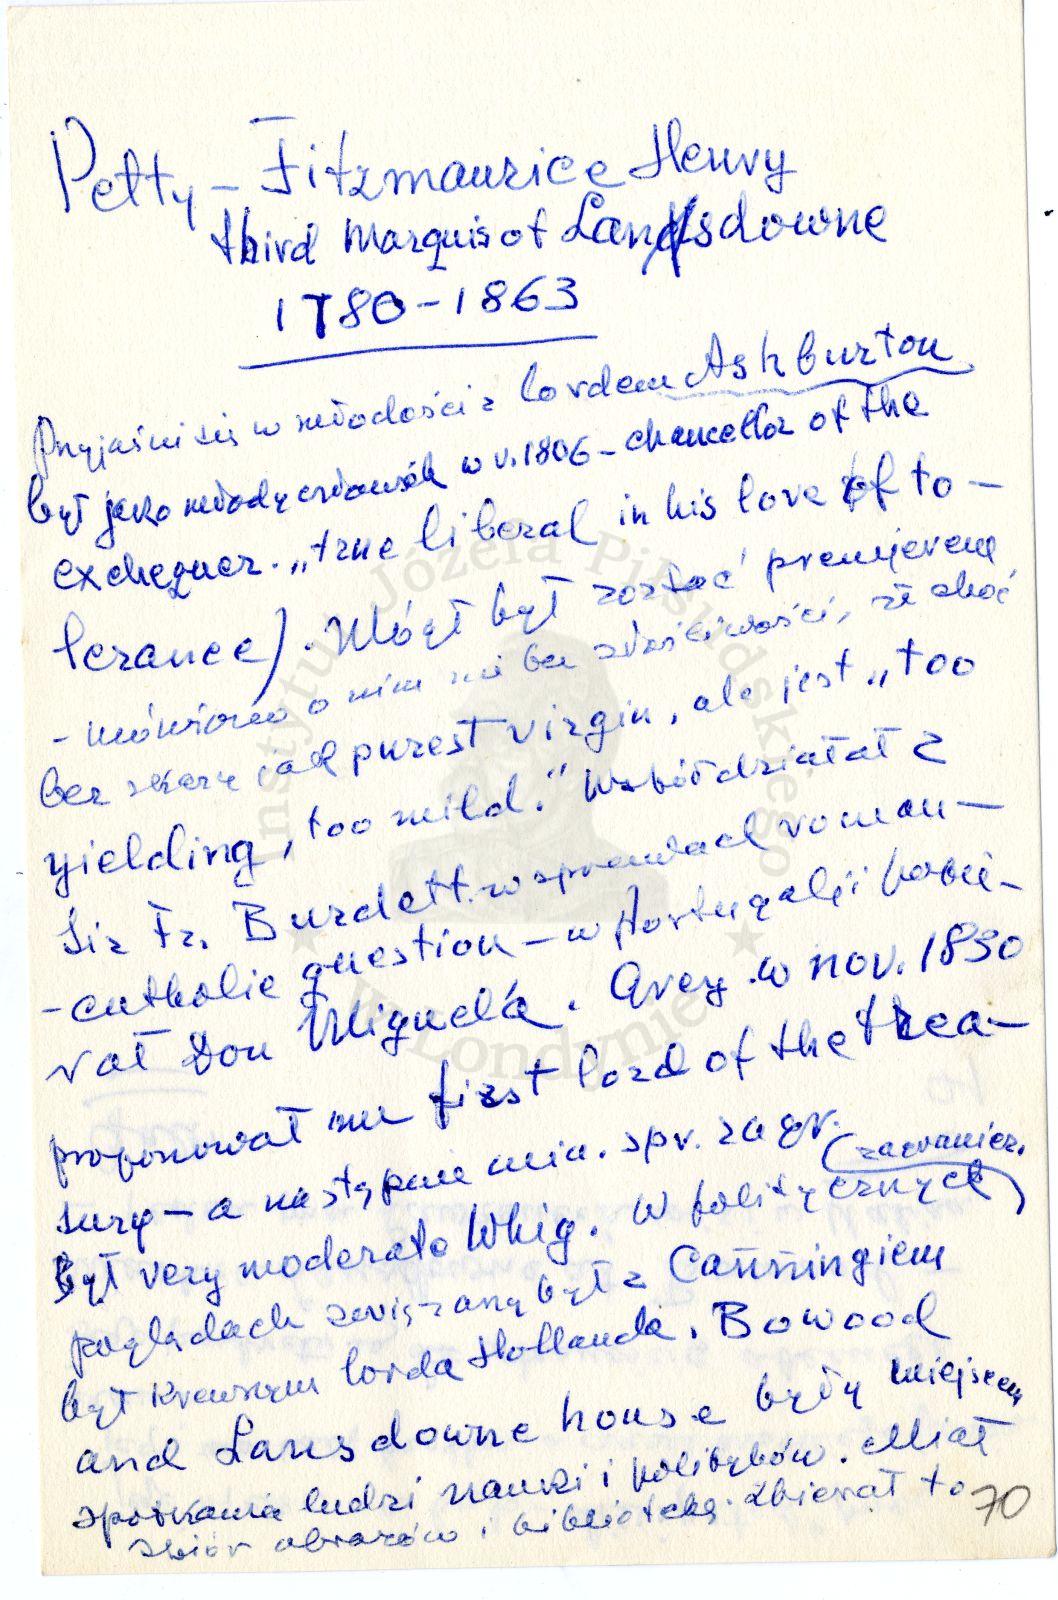 Petty – Fitzmaurice Henry
third Marquis of Lansdowne
1780 – 1863
Przyjaźni się w młodości z lordem Ashburton
był jako młody człowiek w r. 1806 – chancellor of the
exchequer. „true liberal in his love of to–
lerance). Mógł był zostać premjerem
– mówiono o nim nie bez złośliwości, że choć
bez skazy jak purest virgin, ale jest „too
yielding, too mild.” Współdziałał z
Sir Fr. Burdett. w sprawach roman–
–catholic question – w Portugalji popie–
rał Don Miguela. Grey w nov. 1830
proponował mu first lord of the trea–
sury – a następnie min. spr. zagr.
(zagranicz.)
Był very moderate Whig. W politycznych
poglądach związany był z Canningiem
był krewnym lorda Hollanda. Bowood
and Lansdowne house były miejscem
spotkania ludzi nauki i polityków. Miał
zbiór obrazów i bibliotekę. Zbierał to
70
Instytut Józefa Piłsudskiego
w Londynie